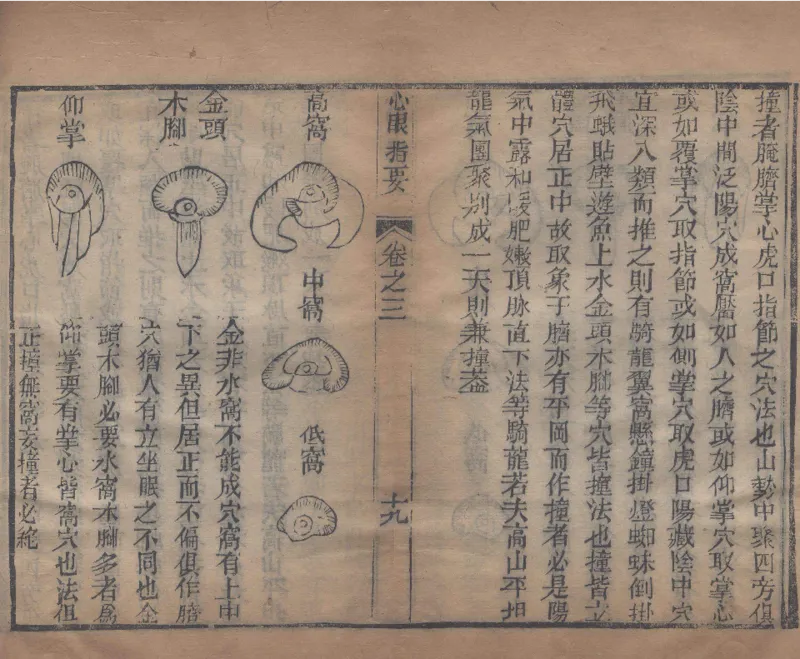 撞者腌臍掌心虎口指節之穴法也山勢中聚四旁俱
陰中間泛陽穴成窩靨如人之臍或如仰掌穴取掌心
或如覆掌穴取指節或如側掌穴取虎口陽藏陰中穴
宜深入類而推之則有騎龍翼窩懸鐘掛燈蜘蛛倒掛
飛蛾貼壁遊魚上水金頭木腳等穴皆撞法也撞皆立
體穴居正中故取象于臍亦有平岡而作撞者必是陽
氣中露和暖肥嫩頂脉直下法等騎龍若夫高山平坦
龍氣團聚別成一天則兼撞葢
心眼指要
卷之三
十九
高窩
中窩
低窩
金頭
木腳
仰掌
金非水窩不能成穴窩有上中
下之異但居正而不偏俱作臍
穴猶人有立坐眠之不同也金
頭木腳必要水窩木腳多者為
仰掌要有掌心皆窩穴也法
正撞無窩妄撞者必